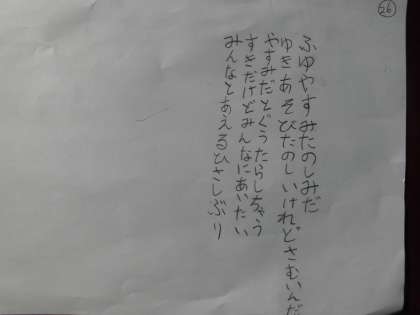 26
ふゆやすみたのしみだ
ゆきあそびたのしいけれどさむいんだ
やすみだとぐうたらしちゃう
すきだけどみんなにあいたい
みんなとあえるひさしぶり